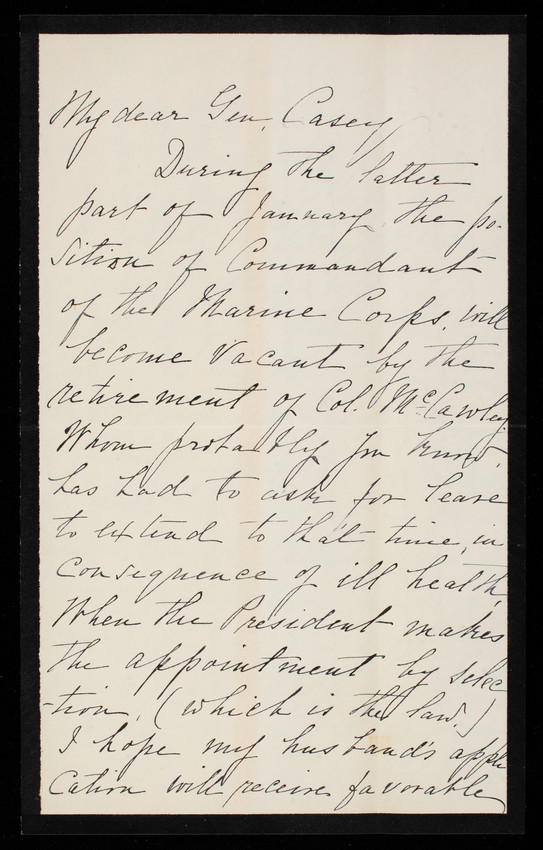 My dear Gen. Casey
During the latter
part of January the po-
sition of Commandant
of the Marine Corps, will
become vacant by the
retirement of Col. McCawley.
Whom probably you know,
has had to ask for leave
to extend to that time, in
consequence of ill health,
When the President makes
the appointment by selec
-tion, (which is the law.)
I hope my husband's appli
cation will receive favorable